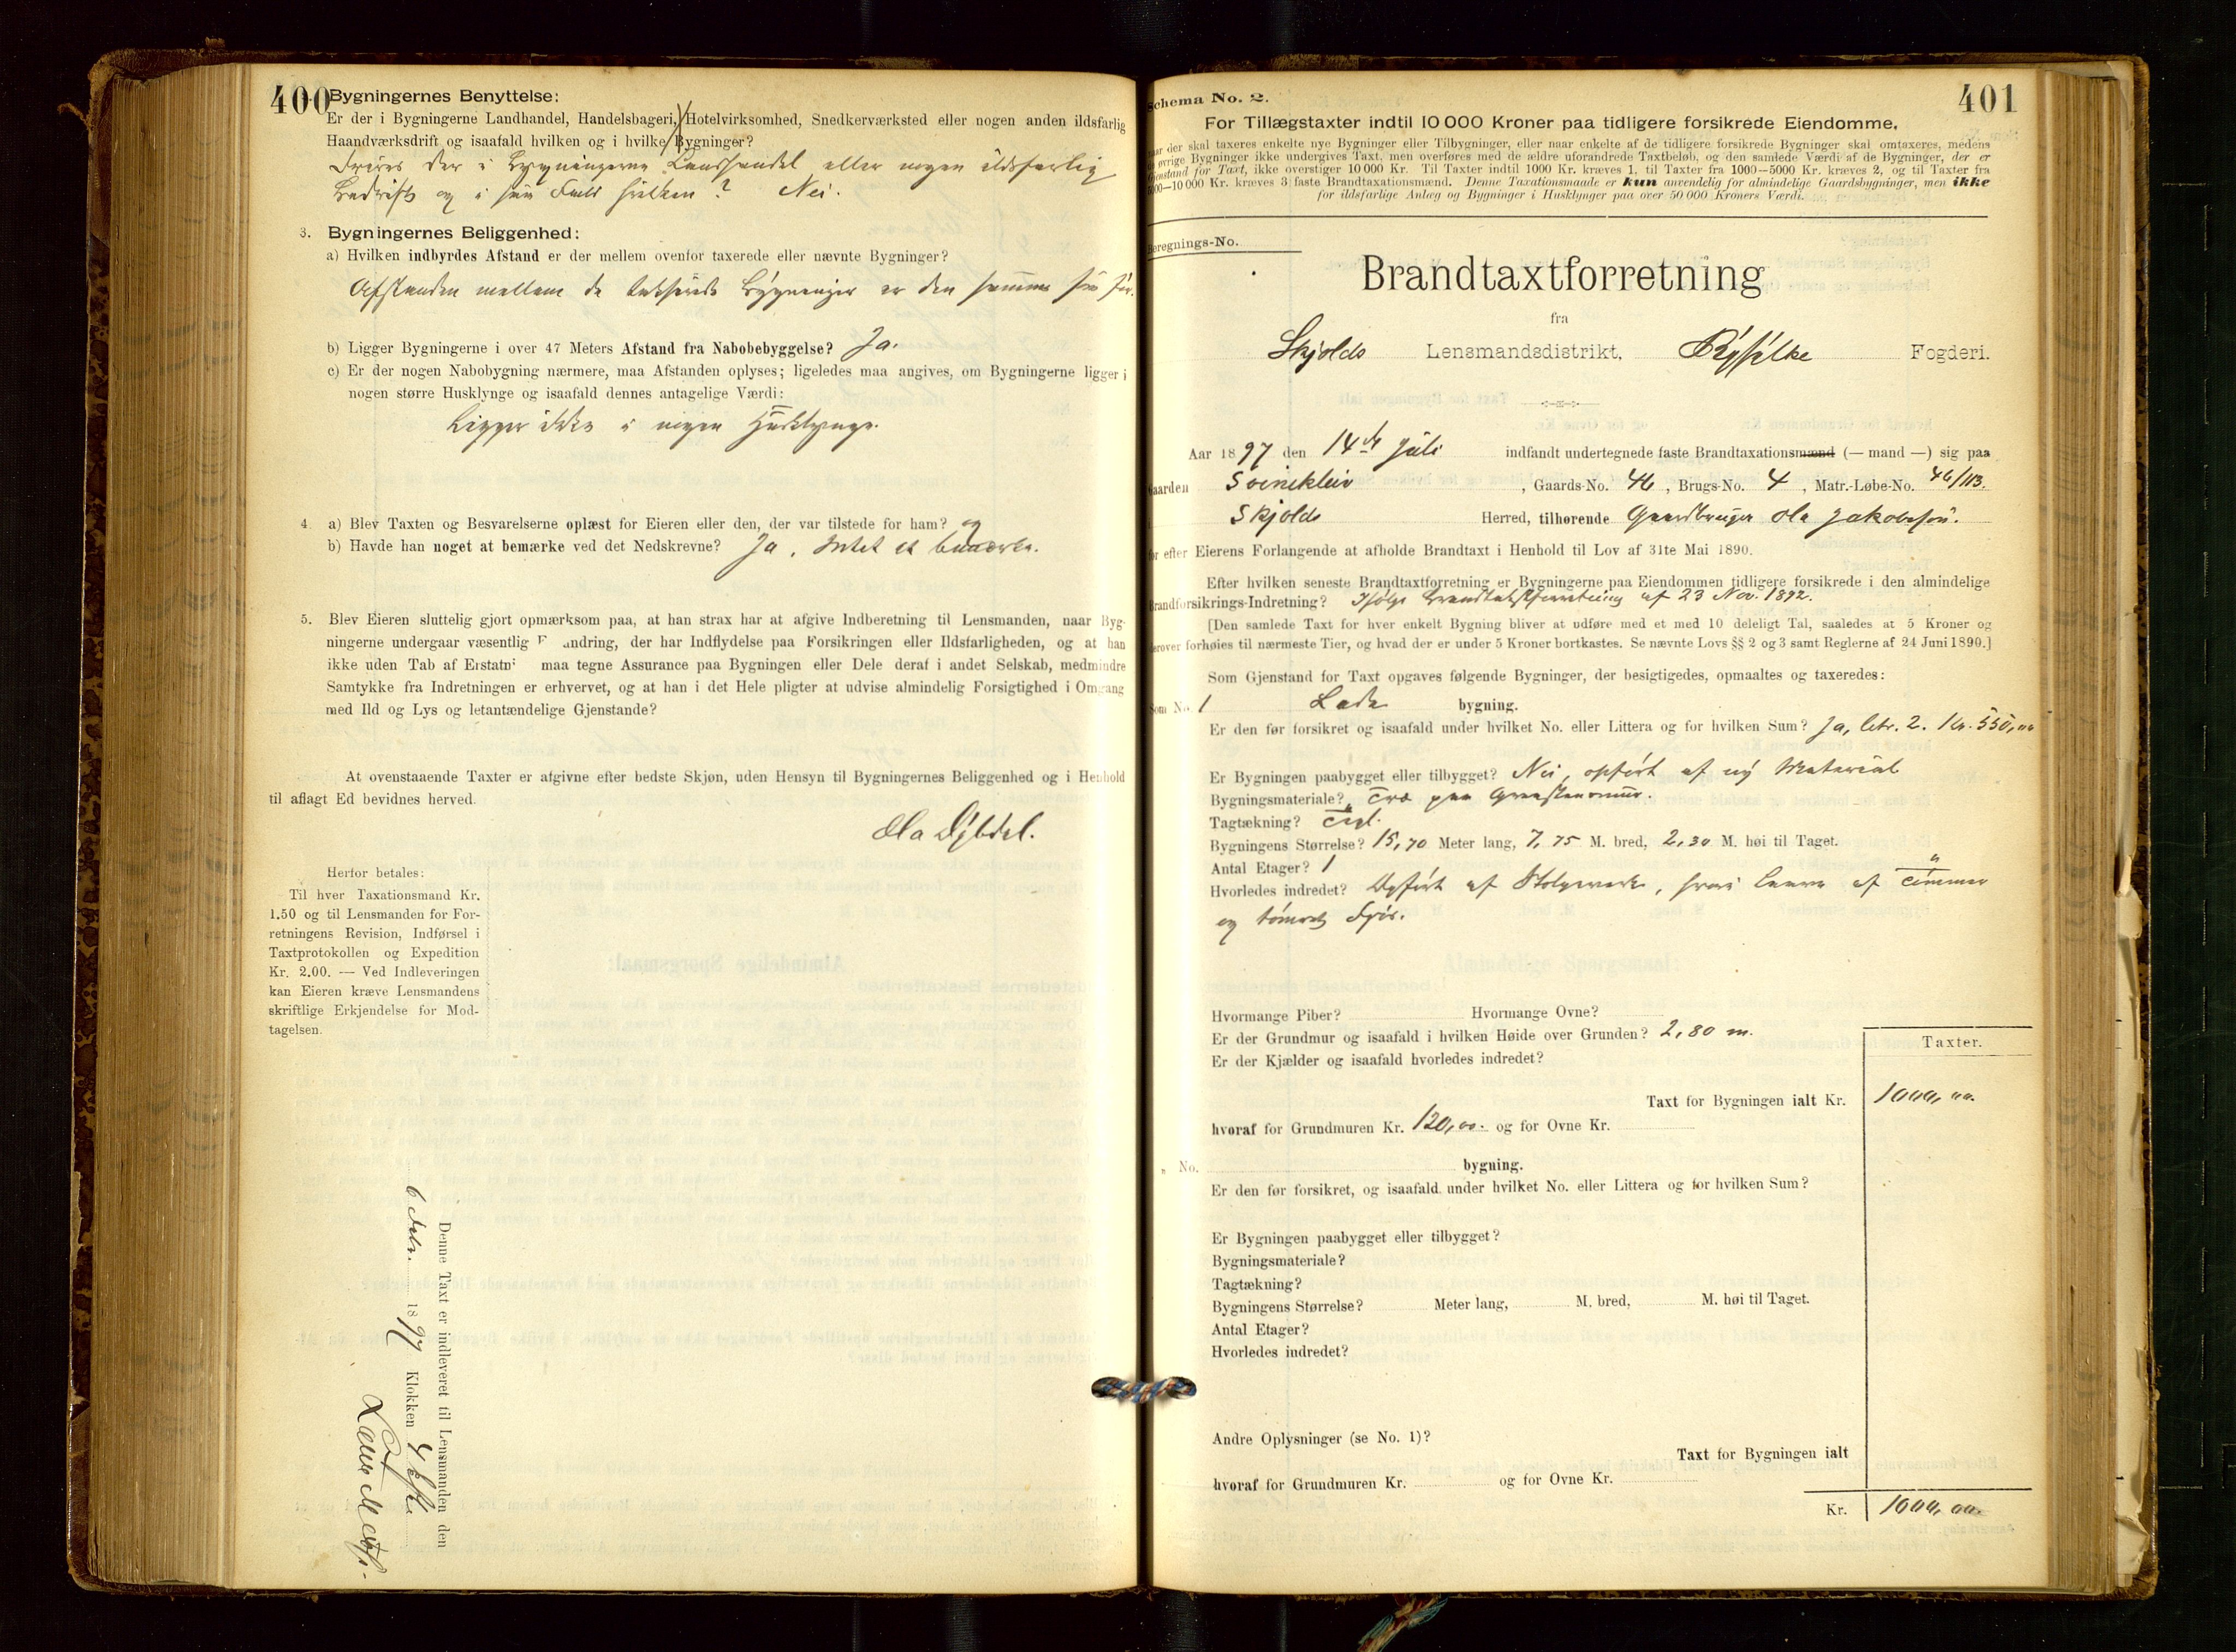 400
Bygningernes Benyttelse:
Er der i Bygningerne Landhandel, Handelsbageri, Hotelvirksomhed, Snedkerværksted eller nogen anden ildsfarlig
Haandværksdrift og isaafald hvilken og i hvilke Bygninger?
Drives der i Bygningerne Landhandel eller nogen ildsfarlig
Bedrift og i saa Fald hvilken? Nei.
3. Bygningernes Beliggenhed:
a) Hvilken indbyrdes Afstand er der mellem ovenfor taxerede eller nævnte Bygninger?
Afstanden mellem de taxerede Bygninger er den samme som før.
b) Ligger Bygningerne i over 47 Meters Afstand fra Nabobebyggelse? Ja.
c) Er der nogen Nabobygning nærmere, maa Afstanden oplyses; ligeledes maa angives, om Bygningerne ligger i
nogen større Husklynge og isaafald dennes antagelige Værdi:
Ligger ikke i nogen Husklynge.
4. a) Blev Taxten og Besvarelserne oplæst for Eieren eller den, der var tilstede for ham? og
b) Havde han noget at bemærke ved det Nedskrevne? Ja, Intet at bemærke.
5. Blev Eieren sluttelig gjort opmærksom paa, at han strax har at afgive Indberetning til Lensmanden, naar Byg-
ningerne undergaar væsentlig F andring, der har Indflydelse paa Forsikringen eller Ildsfarligheden, og at han
ikke uden Tab af Erstatn maa tegne Assurance paa Bygningen eller Dele deraf i andet Selskab, medmindre
Samtykke fra Indretningen er erhvervet, og at han i det Hele pligter at udvise almindelig Forsigtighed i Omgang
med Ild og Lys og letantændelige Gjenstande?
At ovenstaaende Taxter er afgivne efter bedste Skjøn, uden Hensyn til Bygningernes Beliggenhed og i Henhold
til aflagt Ed bevidnes herved.
Ola
Herfor betales:
Til hver Taxationsmand Kr.
1.50 og til Lensmanden for For-
retningens Revision, Indførsel i
Taxtprotokollen og Expedition
Kr. 2.00. — Ved Indleveringen
kan Eieren kræve Lensmandens
skriftlige Erkjendelse for Mod-
tagelsen.
Denne Taxt er indleveret til Lensmanden den
6 1897 Klokken 4
401
Schema No. 2.
For Tillægstaxter indtil 10 000 Kroner paa tidligere forsikrede Eiendomme.
naar der skal taxeres enkelte nye Bygninger eller Tilbygninger, eller naar enkelte af de tidligere forsikrede Bygninger skal omtaxeres, medens
de øvrige Bygninger ikke undergives Taxt, men overføres med de ældre uforandrede Taxtbeløb, og den samlede Værdi af de Bygninger, der er
Gjenstand for Taxt, ikke overstiger 10 000 Kr. Til Taxter indtil 1000 Kr. kræves 1, til Taxter fra 1000—5000 Kr. kræves 2, og til Taxter fra
5000—10 000 Kr. kræves 3 faste Brandtaxationsmænd. Denne Taxationsmaade er kun anvendelig for almindelige Gaardsbygninger, men ikke
for ildsfarlige Anlæg og Bygninger i Husklynger paa over 50 000 Kroners Værdi.
Beregnings-No.
Brandtaxtforretning
fra
Skjolds Lensmandsdistrikt, Ryfylke Fogderi.
Aar 1897 den 14de Juli indfandt undertegnede faste Brandtaxationsmænd (— mand —) sig paa
Gaarden Svinekleiv, Gaards-No. 46, Brugs-No. 4, Matr.-Løbe-No. 46/113.
Skjolds Herred, tilhørende Gaardbruger Ola Jakobsen.
for efter Eierens Forlangende at afholde Brandtaxt i Henhold til Lov af 31te Mai 1890.
Efter hvilken seneste Brandtaxtforretning er Bygningerne paa Eiendommen tidligere forsikrede i den almindelige
Brandforsikrings-Indretning? Ifølge Brandtakstforretning af 23 Nov. 1892.
[Den samlede Taxt for hver enkelt Bygning bliver at udføre med et med 10 deleligt Tal, saaledes at 5 Kroner og
derover forhøies til nærmeste Tier, og hvad der er under 5 Kroner bortkastes. Se nævnte Lovs §§ 2 og 3 samt Reglerne af 24 Juni 1890.]
Som Gjenstand for Taxt opgaves følgende Bygninger, der besigtigedes, opmaaltes og taxeredes:
Som No. 1 Lade bygning.
Er den før forsikret og isaafald under hvilket No. eller Littera og for hvilken Sum? Ja, letr. 2. Kr. 550,00
Er Bygningen paabygget eller tilbygget? Nei, opført af ny Material
Bygningsmateriale? Træ paa Graastensmur.
Tagtækning? Tegl.
Bygningens Størrelse? 15,70 Meter lang, 7,75 M. bred, 2,30 M. høi til Taget.
Antal Etager? 1
Hvorledes indredet? Opført af Stolpeværk, hvori Laave af Tømmer
og tømret Fjøs.
Hvormange Piber? Hvormange Ovne?
Er der Grundmur og isaafald i hvilken Høide over Grunden? 2,80 m.
Er der Kjælder og isaafald hvorledes indredet?
Taxter.
Taxt for Bygningen ialt Kr. 1000,00.
hvoraf for Grundmuren Kr. 120,00. og for Ovne Kr.
" No. bygning.
Er den før forsikret, og isaafald under hvilket No. eller Littera og for hvilken Sum?
Er Bygningen paabygget eller tilbygget?
Bygningsmateriale?
Tagtækning?
Bygningens Størrelse? Meter lang, M. bred, M. høi til Taget.
Antal Etager?
Hvorledes indredet?
Andre Oplysninger (se No. 1)?
Taxt for Bygningen ialt
hvoraf for Grundmuren Kr. og for Ovne Kr.
Kr. 1000,00.